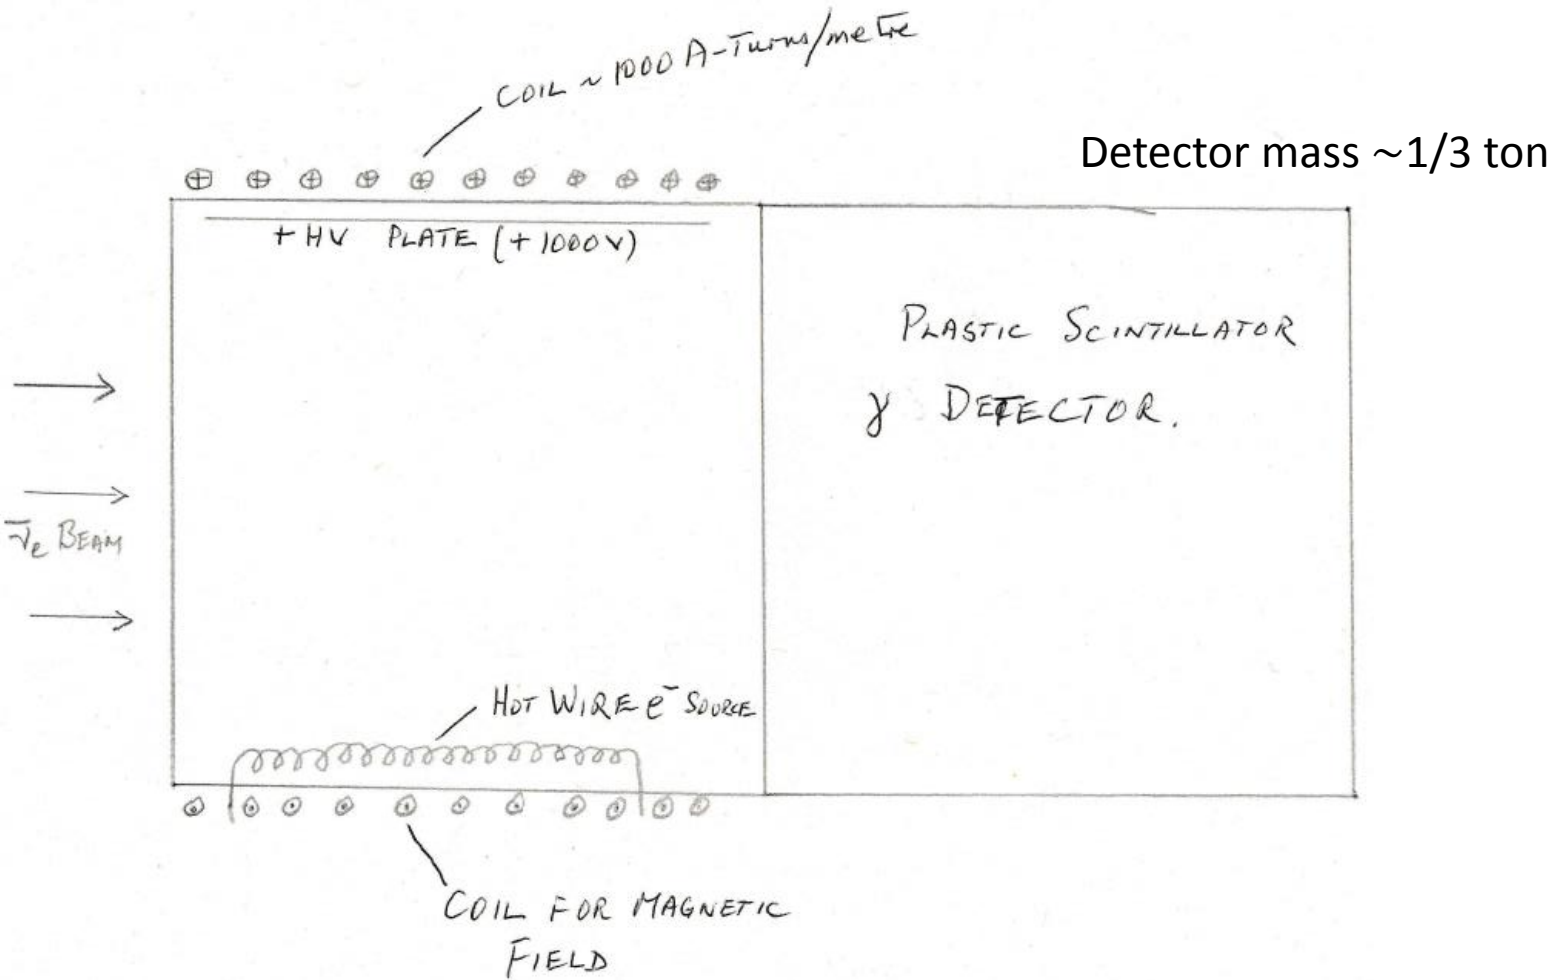 COIL ~ 1000 A-Turns/metre
Detector mass ~1/3 ton
+ HV PLATE (+1000V)
PLASTIC SCINTILLATOR
γ DETECTOR.
ν̄e BEAM
HOT WIRE e⁻ SOURCE
COIL FOR MAGNETIC
FIELD